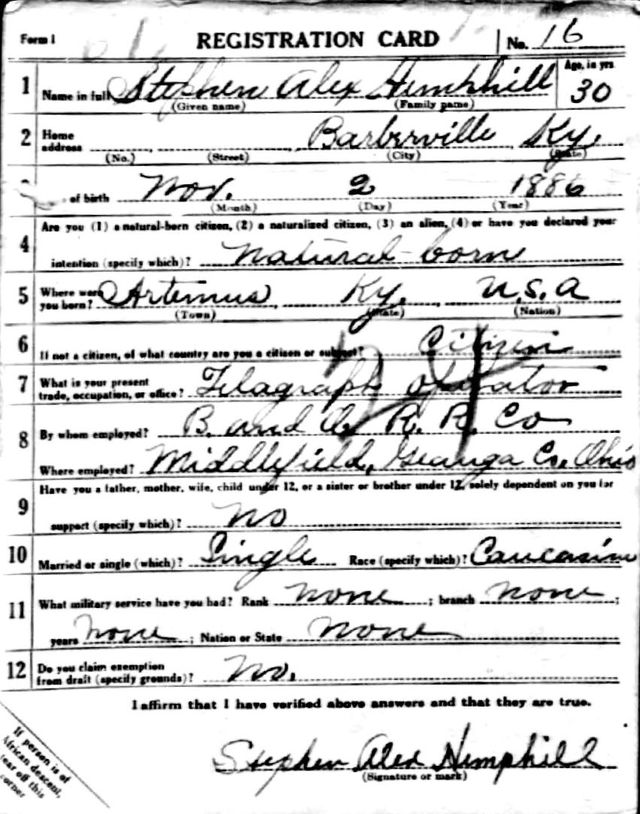 Form 1 REGISTRATION CARD No. 16
1 Name in full Stephen Alex Hemphill Age, in yrs 30
(Given name) (Family name)
2 Home address Barbrrville Ky.
(No.) (Street) (City) (State)
of birth Nov. 2 1886
(Month) (Day) (Year)
4 Are you (1) a natural-born citizen, (2) a naturalized citizen, (3) an alien, (4) or have you declared your
intention (specify which)? natural-born
5 Where were you born? Artemus Ky. U.S.A
(Town) (State) (Nation)
6 If not a citizen, of what country are you a citizen or subject? Citizen
7 What is your present trade, occupation, or office? Telagraph operator
8 By whom employed? B. and O. R. R. Co
Where employed? Middlefield, Geauga Co., Ohio
9 Have you a father, mother, wife, child under 12, or a sister or brother under 12, solely dependent on you for
support (specify which)? No
10 Married or single (which)? Single Race (specify which)? Caucasian
11 What military service have you had? Rank none ; branch none ;
years none ; Nation or State none
12 Do you claim exemption from draft (specify grounds)? No.
I affirm that I have verified above answers and that they are true.
Stephen Alex Hemphill
(Signature or mark)
If person is of
African descent,
tear off this
corner